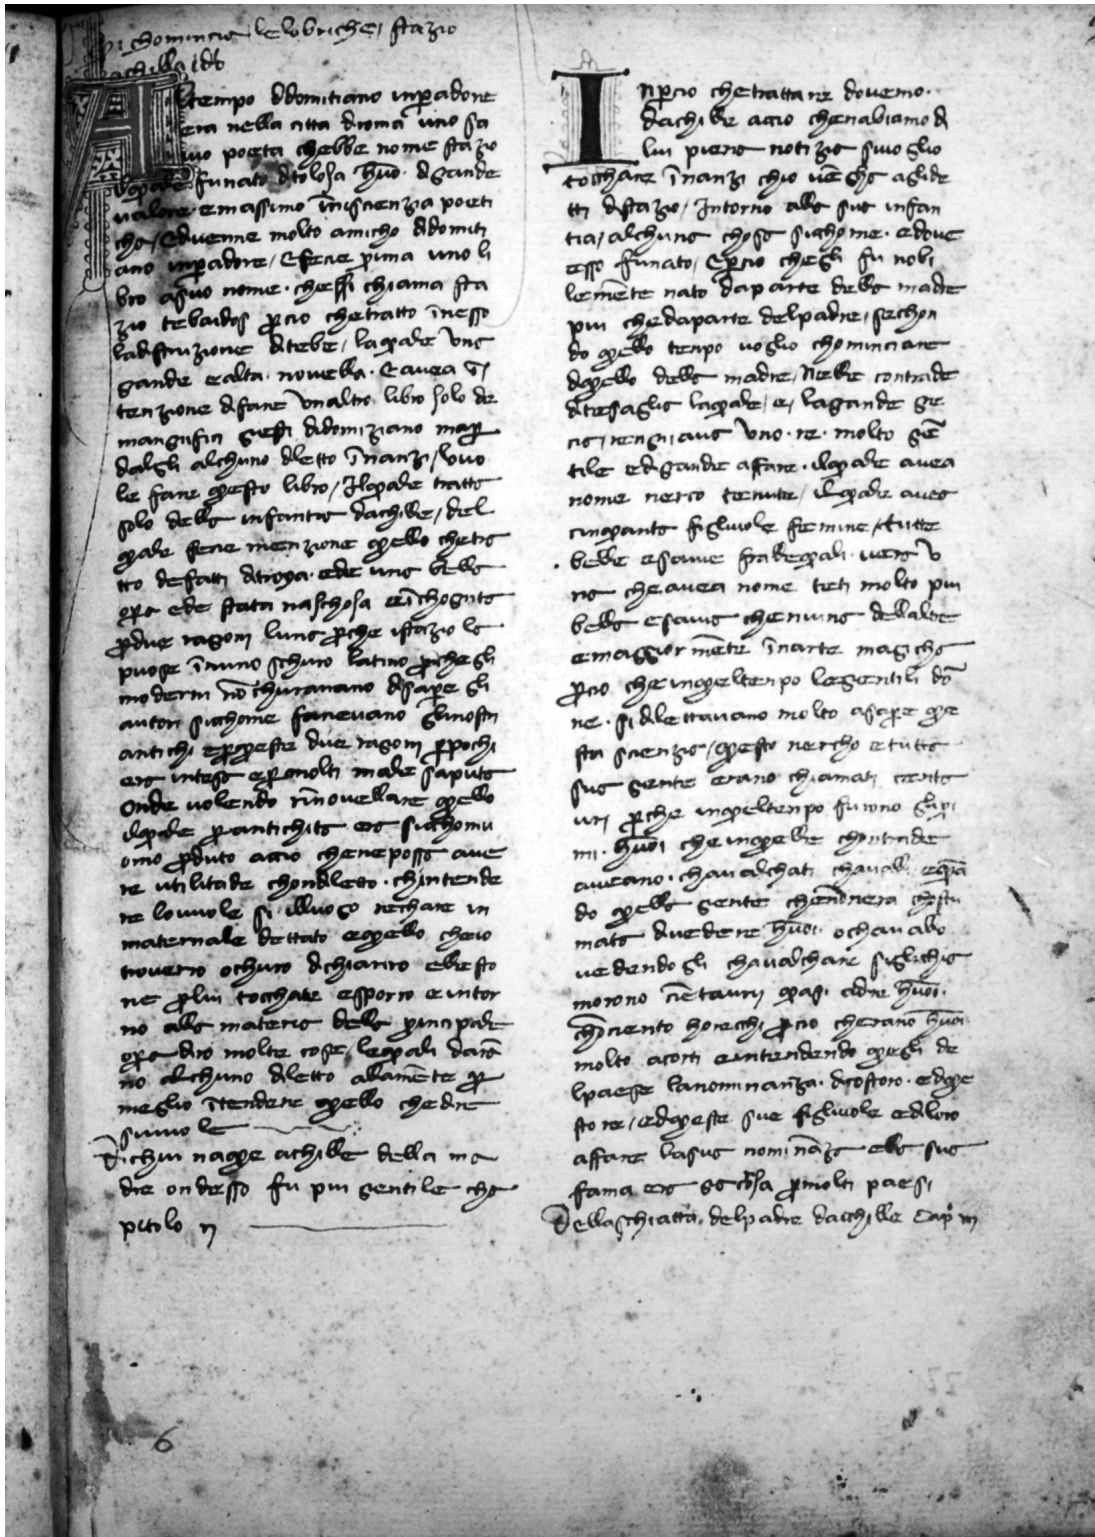 chomincia, lelobriche, stazio
achilleidos
Altempo ddomitiano inperadore
era nella citta droma uno sa
uio poeta chebbe nome stazio
ilquale funato dtolosa huo. dgrande
ualore. emassimo iniscienza poeti
cha, Eduenne molto amicho ddomiti
ano inperadore, Efecie prima uno li
bro asuo nome. chessi chiama sta
zio tebaidos percio chetratto inesso
ladistruzione dtebe, laquale una
grande ealta. nouella. Eauea in
tenzione dfare unaltro libro solo de
mangnifici giesti ddomiziano map
dalgli alchuno dletto inanzi, uuo
le fare questo libro, Ilquale tratta
solo della infantia dachille, del
quale fecie menzione quello cheta
tto defatti dtroya. ede una bella
opera ede stata naschosa eincholgnita
perdue ragoni luna perche istazio la
puose innuno schuro latino perchegli
moderni non churauano dsapere gli
autori sicchome facieuano glinostri
antichi eperqueste due ragoni perpochi
era intesa epermolti male saputa
Onde uolendo rinnouellare quello
ilquale perantichita era sicchomu
omo perduto accio cheneposse aue
re utilitade chondletto. chintende
re louuole si illuogo rechare in
maternale dettato equello cheio
trouerro ochuro dchiarro ellesto
rie perlui tocchate esporro eintor
no alla materia della principale
opera diro molte cose, lequali daran
no alchuno dletto allamente per
meglio intendere quello chedre
siuuole
Dichui naque achille della ma
dre ondesso fu piu gentile cha
pitolo ij
Inpercio chetrattare douemo.
dachille accio chenabiamo d
lui piena notizia siuoglio
tocchare inanzi chio uengha aglide
tti dstazio, Intorno alla sua infan
tia, alchuna chosa sicchome. edoue
esso funato, Epercio chegli fu nobi
lemente nato daparte della madre
piu chedaparte delpadre, sechon
do quello tenpo uoglio chominciare
dquello della madre, Nelle contrade
dtesaglia laquale, e, lagrande gre
cia, rengniaua uno. re. molto gen
tile edgrande affare. ilquale auea
nome nerco tenute, ilquale auea
cinquanta figliuole femine, tutte
belle esauie fralequali. uera u
na cheauea nome teti molto piu
bella esauia cheniuna dellaltre
emaggiormente innarte magicha
percio cheinqueltenpo legientili don
ne. si dlettauano molto asapere que
sta scienzia, questo nercho etutta
sua giente erano chiamati centa
uri perche inqueltenpo furono glipri
mi. huoi. cheinquelle chontrade
aueano. chaualchati chaualli. equan
do quella giente chenonera chostu
mata dueder huoi. ochauallo
uedendogli chaualchare siglichia
morono cientaurij quasi cidre huoi.
chonciento horecchi percio cherano huoi.
molto acorti eintendendo quegli de
lpaese lanominanza. dcostoro. edque
sto re, edqueste sue figliuole ediloro
affare lasua nominanza ella sua
fama era gacosa permolti paesi
Dellaschiatta. delpadre dacchille Capo iij
6